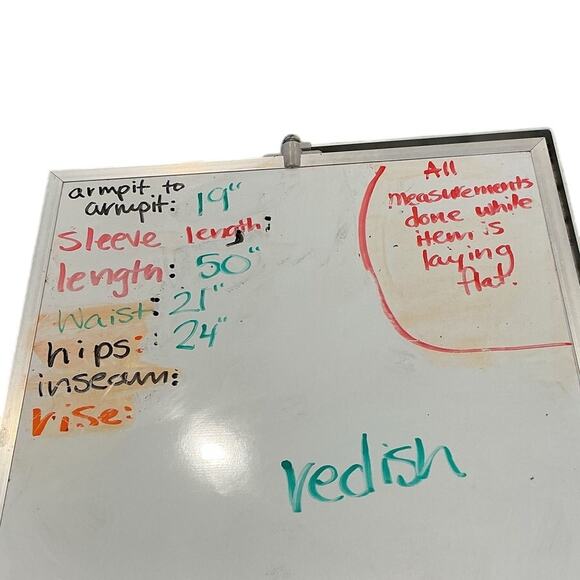 armpit to
armpit: 19"
Sleeve length:
length: 50"
Waist: 21"
hips: 24"
inseam:
rise:
All
measurements
done while
item is
laying
flat.
redish